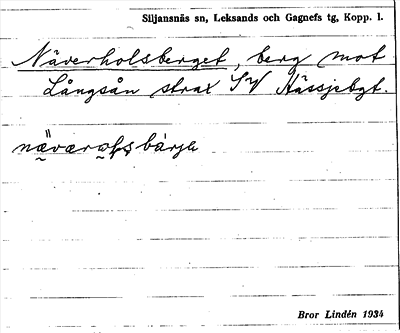 Siljansnäs sn, Leksands och Gagnefs tg, Kopp. l.
Näverholsberget, berg mot
Långsån strax SV Hässjebgt.
Bror Lindén 1934